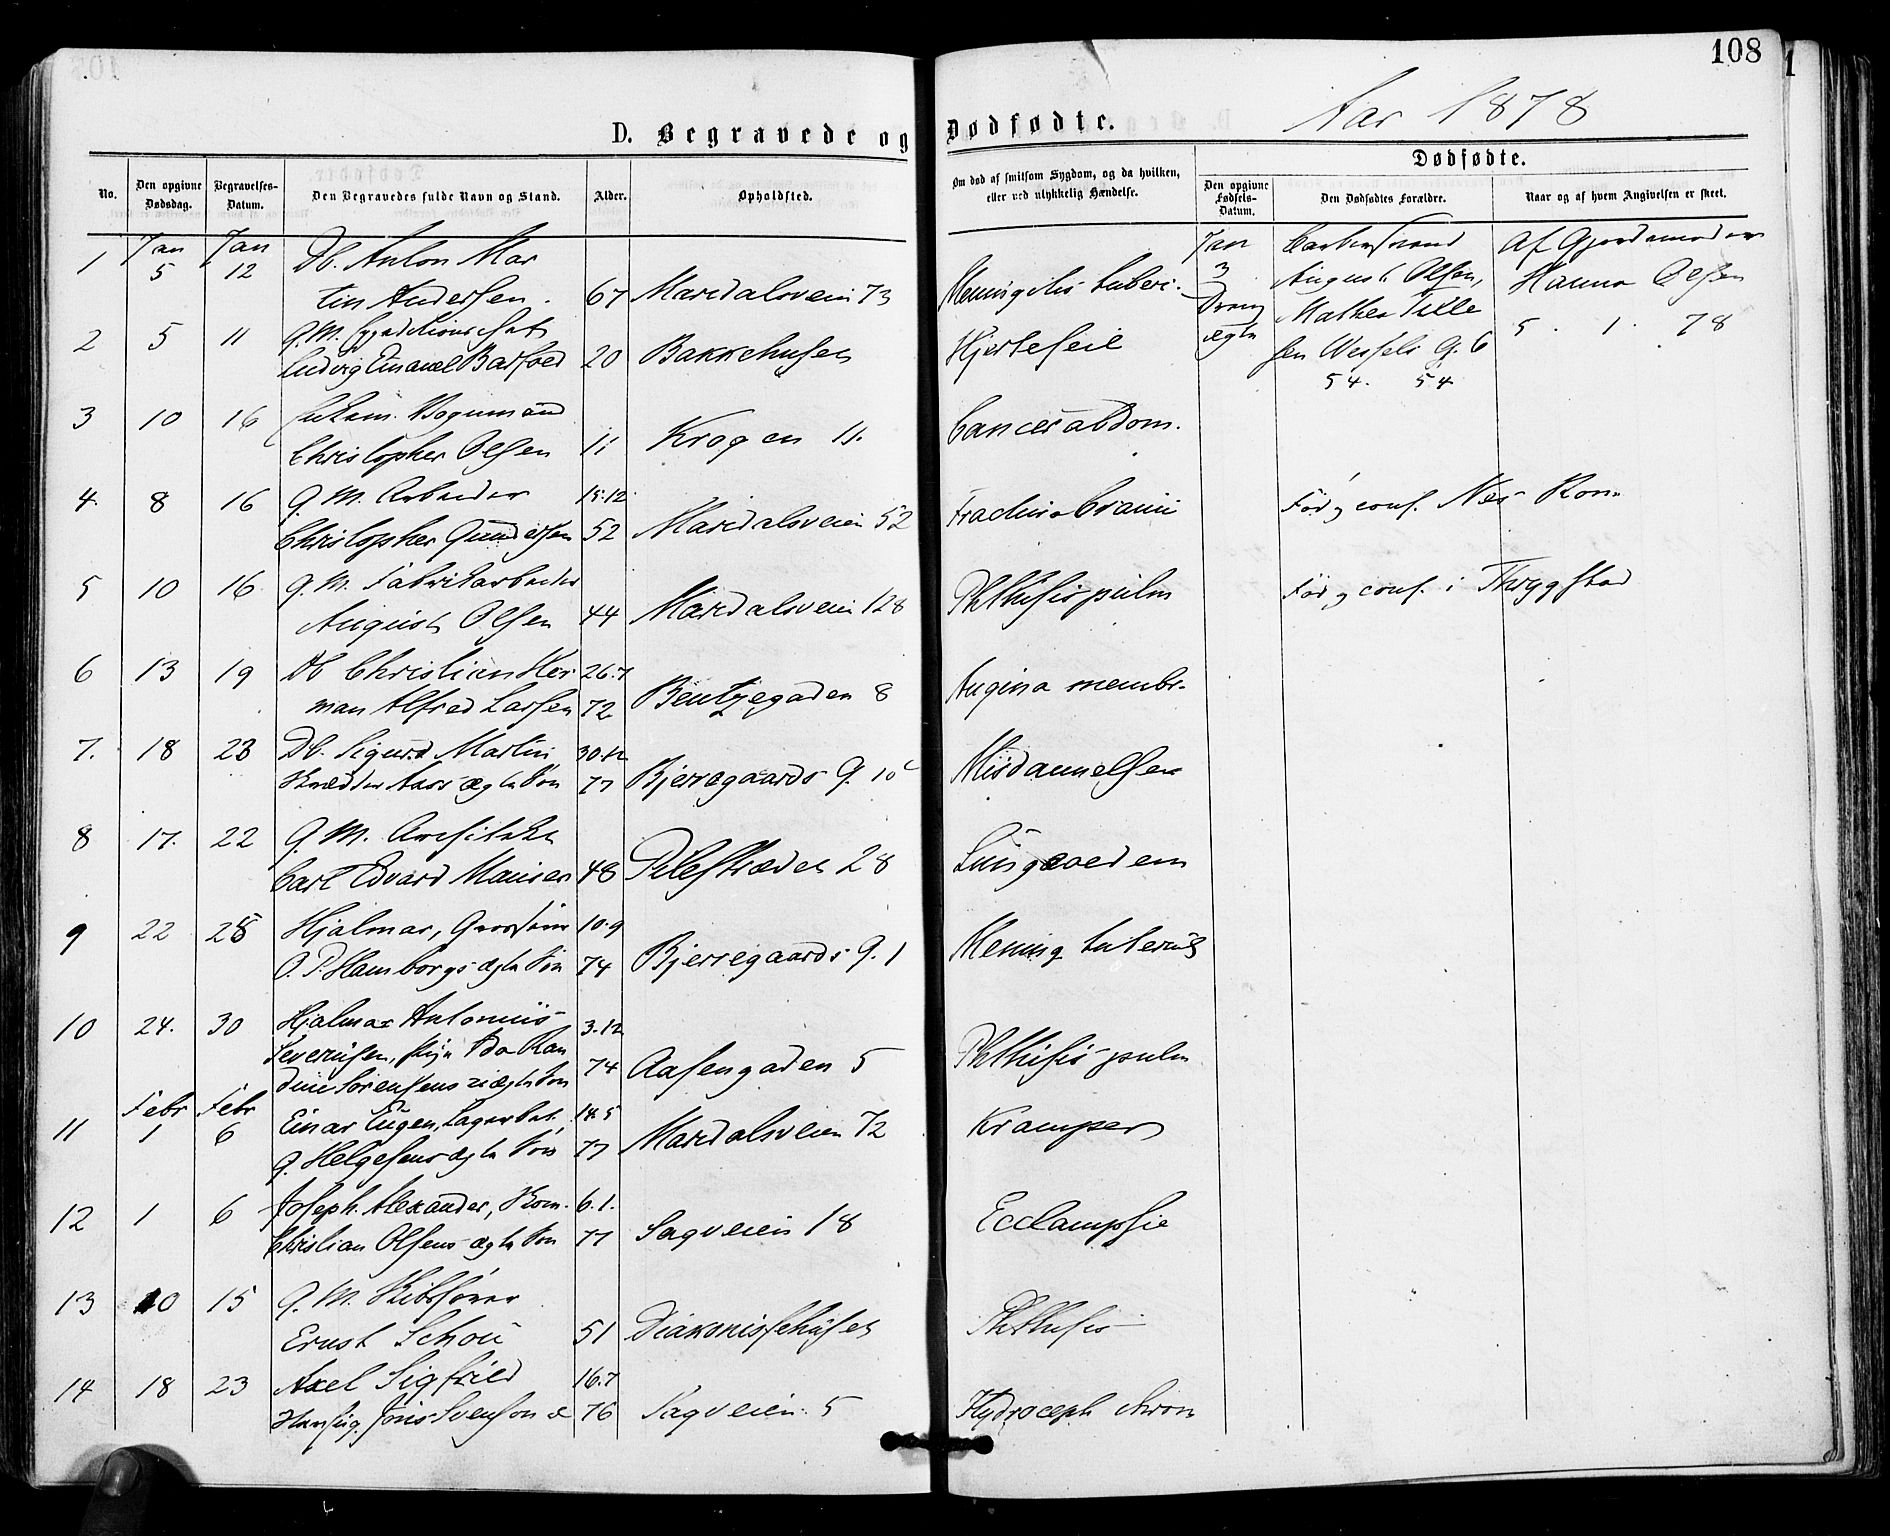 108
D. Begravede og Dødfødte.
Aar 1878
No.
Den opgivne Dødsdag.
Begravelses-Datum.
Den Begravedes fulde Navn og Stand.
Alder.
Opholdsted.
Om død af smitsom Sygdom, og da hvilken, eller ved ulykkelig Hændelse.
Dødfødte.
Den opgivne Fødsels-Datum.
Den Dødfødtes Forældre.
Naar og af hvem Angivelsen er skeet.
1 Jan 5 Jan 12 Db. Anton Mar
tin Andersen. 67 Maridalsvein 73 Meningitis tuberc.
Jan 3 Dreng ægte
August Olsen,
Mathea Tille
sen Wessels G. 6
54. 54
Af Gjordemoder
Hanna Olsen
5. 1. 78
2 5 11 G.M.
Ludvig Emanuel Barfoed 20 Bakkehuset Hjertefeil
3 10 16
Christopher Olsen 11 Krogen 11. Cancer abdom.
4. 8 16 G.M. Arbeider 15.12
Christopher Gundersen 52 Maridalsveien 52 Fractura Cranii Fød og conf. Nes Rom.
5 10 16 G.M. Fabrikarbeider
August Olsen 44 Maridalsveien 128 Phthisis pulm Fød og conf. i Thrygstad
6 13 19 Db Christian Her 26.7
man Alfred Larsen 72 Bentzegaden 8 Angina membr.
7. 18 23 Db. Sigurd Martin 30.12
Aass ægte Søn 77 Bjerregaards G. 10 Misdannelsen
8 17. 22 G.M.
Carl Edvard 48 Pilestrædet 28 Lungeoedem
9 22 28 Hjalmar, 10.9
O.P. Hamborgs ægte Søn 74 Bjerregaards G. 1 Mening tubercul
10 24. 30 Hjalmar Antonius 3.12
Severinsen, Ida Ran
dine Sørensens uægte Søn 74 Aasengaden 5 Phthisis pulm
11 Febr 1 Febr 6 Einar Eugen, 18.5
G. Helgesens ægte Søn 77 Maridalsveien 72 Kramper
12 1 6 Joseph Alexander, 6.1.
Christian Olsens ægte Søn 77 Sagveien 18 Ecclampsie
13 10 15 G.M. Skibsfører
Ernst Schou 51 Diakonissehuset Phthisis
14 18 23 Axel Sigfried 16.7
Svenson 76 Sagveien 5 Hydroceph chron